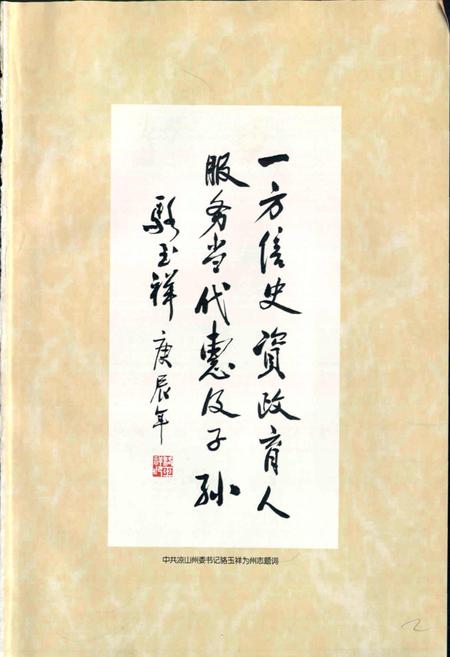 一方信史資政育人
服务当代惠及子孙
駱玉祥 庚辰年
中共凉山州委书记骆玉祥为州志题词
2